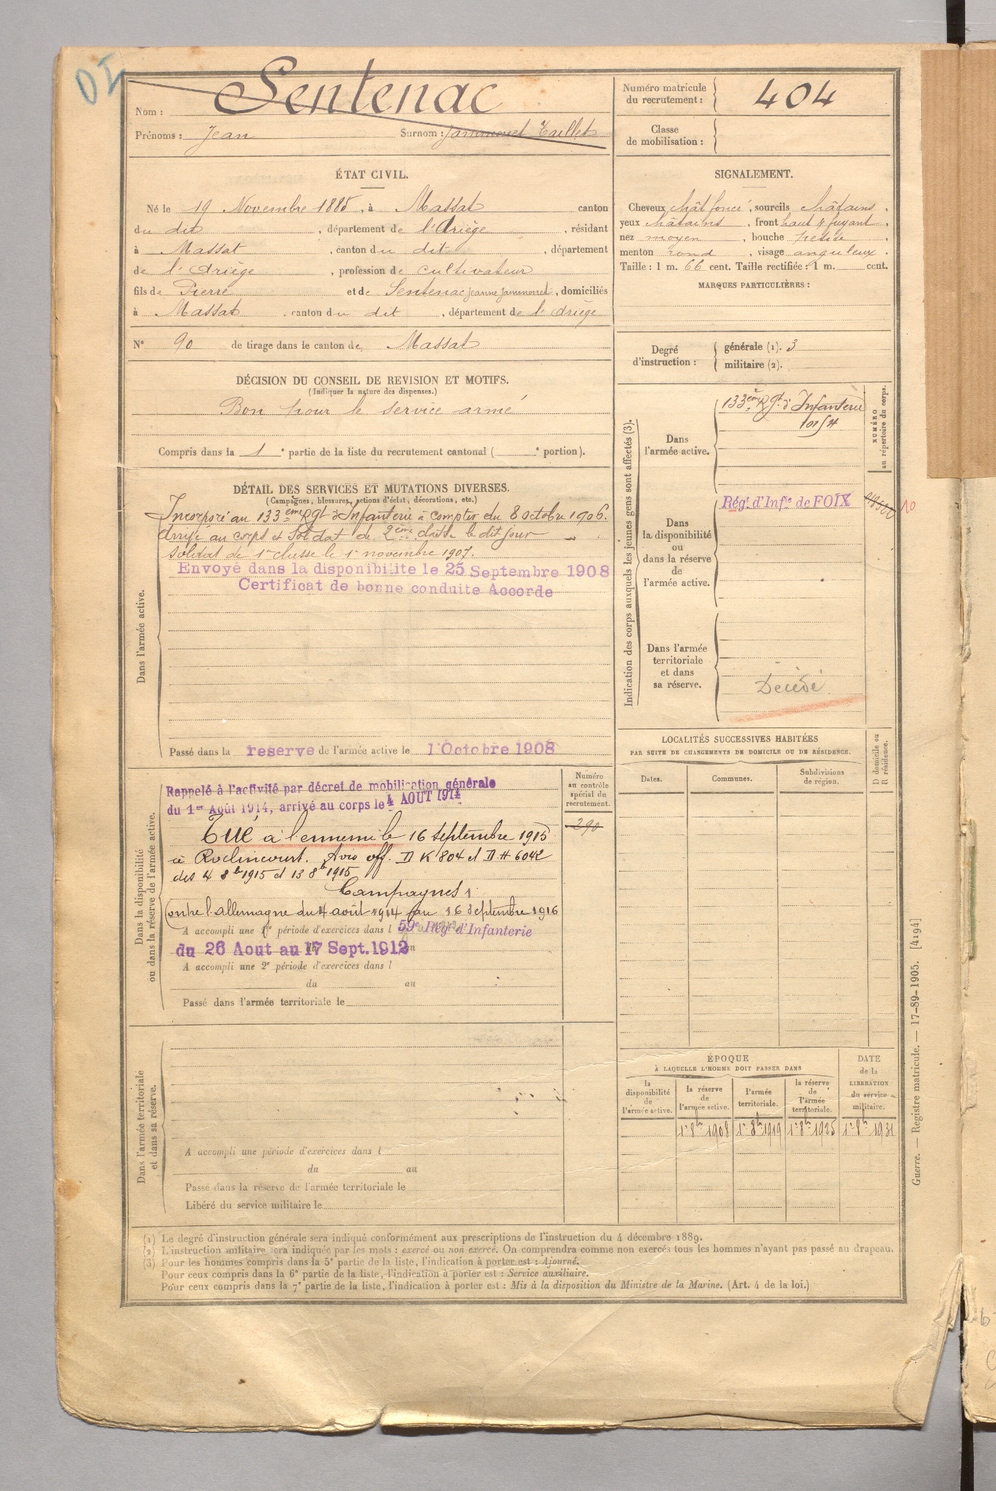 Sentenac
Nom :
Prénoms : Jean Surnom : Jammounet Taillet
Numéro matricule du recrutement : 404
Classe de mobilisation :
ÉTAT CIVIL.
Né le 19 Novembre 1885, à Massat canton
du dit, département de l'Ariège, résidant
à Massat, canton du dit, département
de l'Ariège, profession de cultivateur
fils de Pierre et de Sentenac Jeanne Jammounet, domiciliés
à Massat, canton du dit, département de l'Ariège
N° 90 de tirage dans le canton de Massat
SIGNALEMENT.
Cheveux chât foncé, sourcils châtains,
yeux châtains, front haut & fuyant,
nez moyen, bouche petite,
menton rond, visage anguleux.
Taille : 1 m. 66 cent. Taille rectifiée : 1 m. cent.
MARQUES PARTICULIÈRES :
Degré d'instruction : générale (1). 3
militaire (2).
DÉCISION DU CONSEIL DE REVISION ET MOTIFS.
(Indiquer la nature des dispenses.)
Bon pour le service armé
Compris dans la 1e partie de la liste du recrutement cantonal ( e portion).
DÉTAIL DES SERVICES ET MUTATIONS DIVERSES.
(Campagnes, blessures, actions d'éclat, décorations, etc.)
Dans l'armée active.
Incorporé au 133ème Rgt d'Infanterie à compter du 8 octobre 1906.
Arrivé au corps et Soldat de 2ème classe le dit jour
soldat de 1e classe le 1e novembre 1907.
Envoyé dans la disponibilité le 25 Septembre 1908
Certificat de bonne conduite Accordé
Passé dans la reserve de l'armée active le 1 Octobre 1908
Indication des corps auxquels les jeunes gens sont affectés (3).
NUMÉRO au répertoire du corps.
Dans l'armée active.
133ème Rgt d'Infanterie
Dans la disponibilité ou dans la réserve de l'armée active.
Régt d'Infie de FOIX
Dans l'armée territoriale et dans sa réserve.
Décédé
Dans la disponibilité ou dans la réserve de l'armée active.
Numéro au contrôle spécial du recrutement.
290
Rappelé à l'activité par décret de mobilisation générale
du 1er Août 1914, arrivé au corps le 4 AOUT 1914
Tué à l'ennemi le 16 septembre 1915
à Roclincourt. Avis off. DK 804 et DH 6042
des 4 8bre 1915 et 13 8bre 1915
Campagnes :
Contre l'allemagne du 4 août 1914 au 16 septembre 1916
A accompli une 1e période d'exercices dans l 59e Régt d'Infanterie
du 26 Aout au 17 Sept. 1912
A accompli une 2e période d'exercices dans l
du au
Passé dans l'armée territoriale le
LOCALITÉS SUCCESSIVES HABITÉES
PAR SUITE DE CHANGEMENTS DE DOMICILE OU DE RÉSIDENCE.
Dates. Communes. Subdivisions de région. D domicile ou R résidence.
Dans l'armée territoriale et dans sa réserve.
A accompli une période d'exercices dans l
du au
Passé dans la réserve de l'armée territoriale le
Libéré du service militaire le
ÉPOQUE
À LAQUELLE L'HOMME DOIT PASSER DANS
la disponibilité de l'armée active.
la réserve de l'armée active.
l'armée territoriale.
la réserve de l'armée territoriale.
DATE de la LIBÉRATION du service militaire.
1e 8bre 1908 1e 8bre 1919 1e 8bre 1925 1e 8bre 1931
Guerre. — Registre matricule. — 17-89-1905. [4194]
(1) Le degré d'instruction générale sera indiqué conformément aux prescriptions de l'instruction du 4 décembre 1889.
(2) L'instruction militaire sera indiquée par les mots : exercé ou non exercé. On comprendra comme non exercés tous les hommes n'ayant pas passé au drapeau.
(3) Pour les hommes compris dans la 5e partie de la liste, l'indication à porter est : Ajourné.
Pour ceux compris dans la 6e partie de la liste, l'indication à porter est : Service auxiliaire.
Pour ceux compris dans la 7e partie de la liste, l'indication à porter est : Mis à la disposition du Ministre de la Marine. (Art. 4 de la loi.)